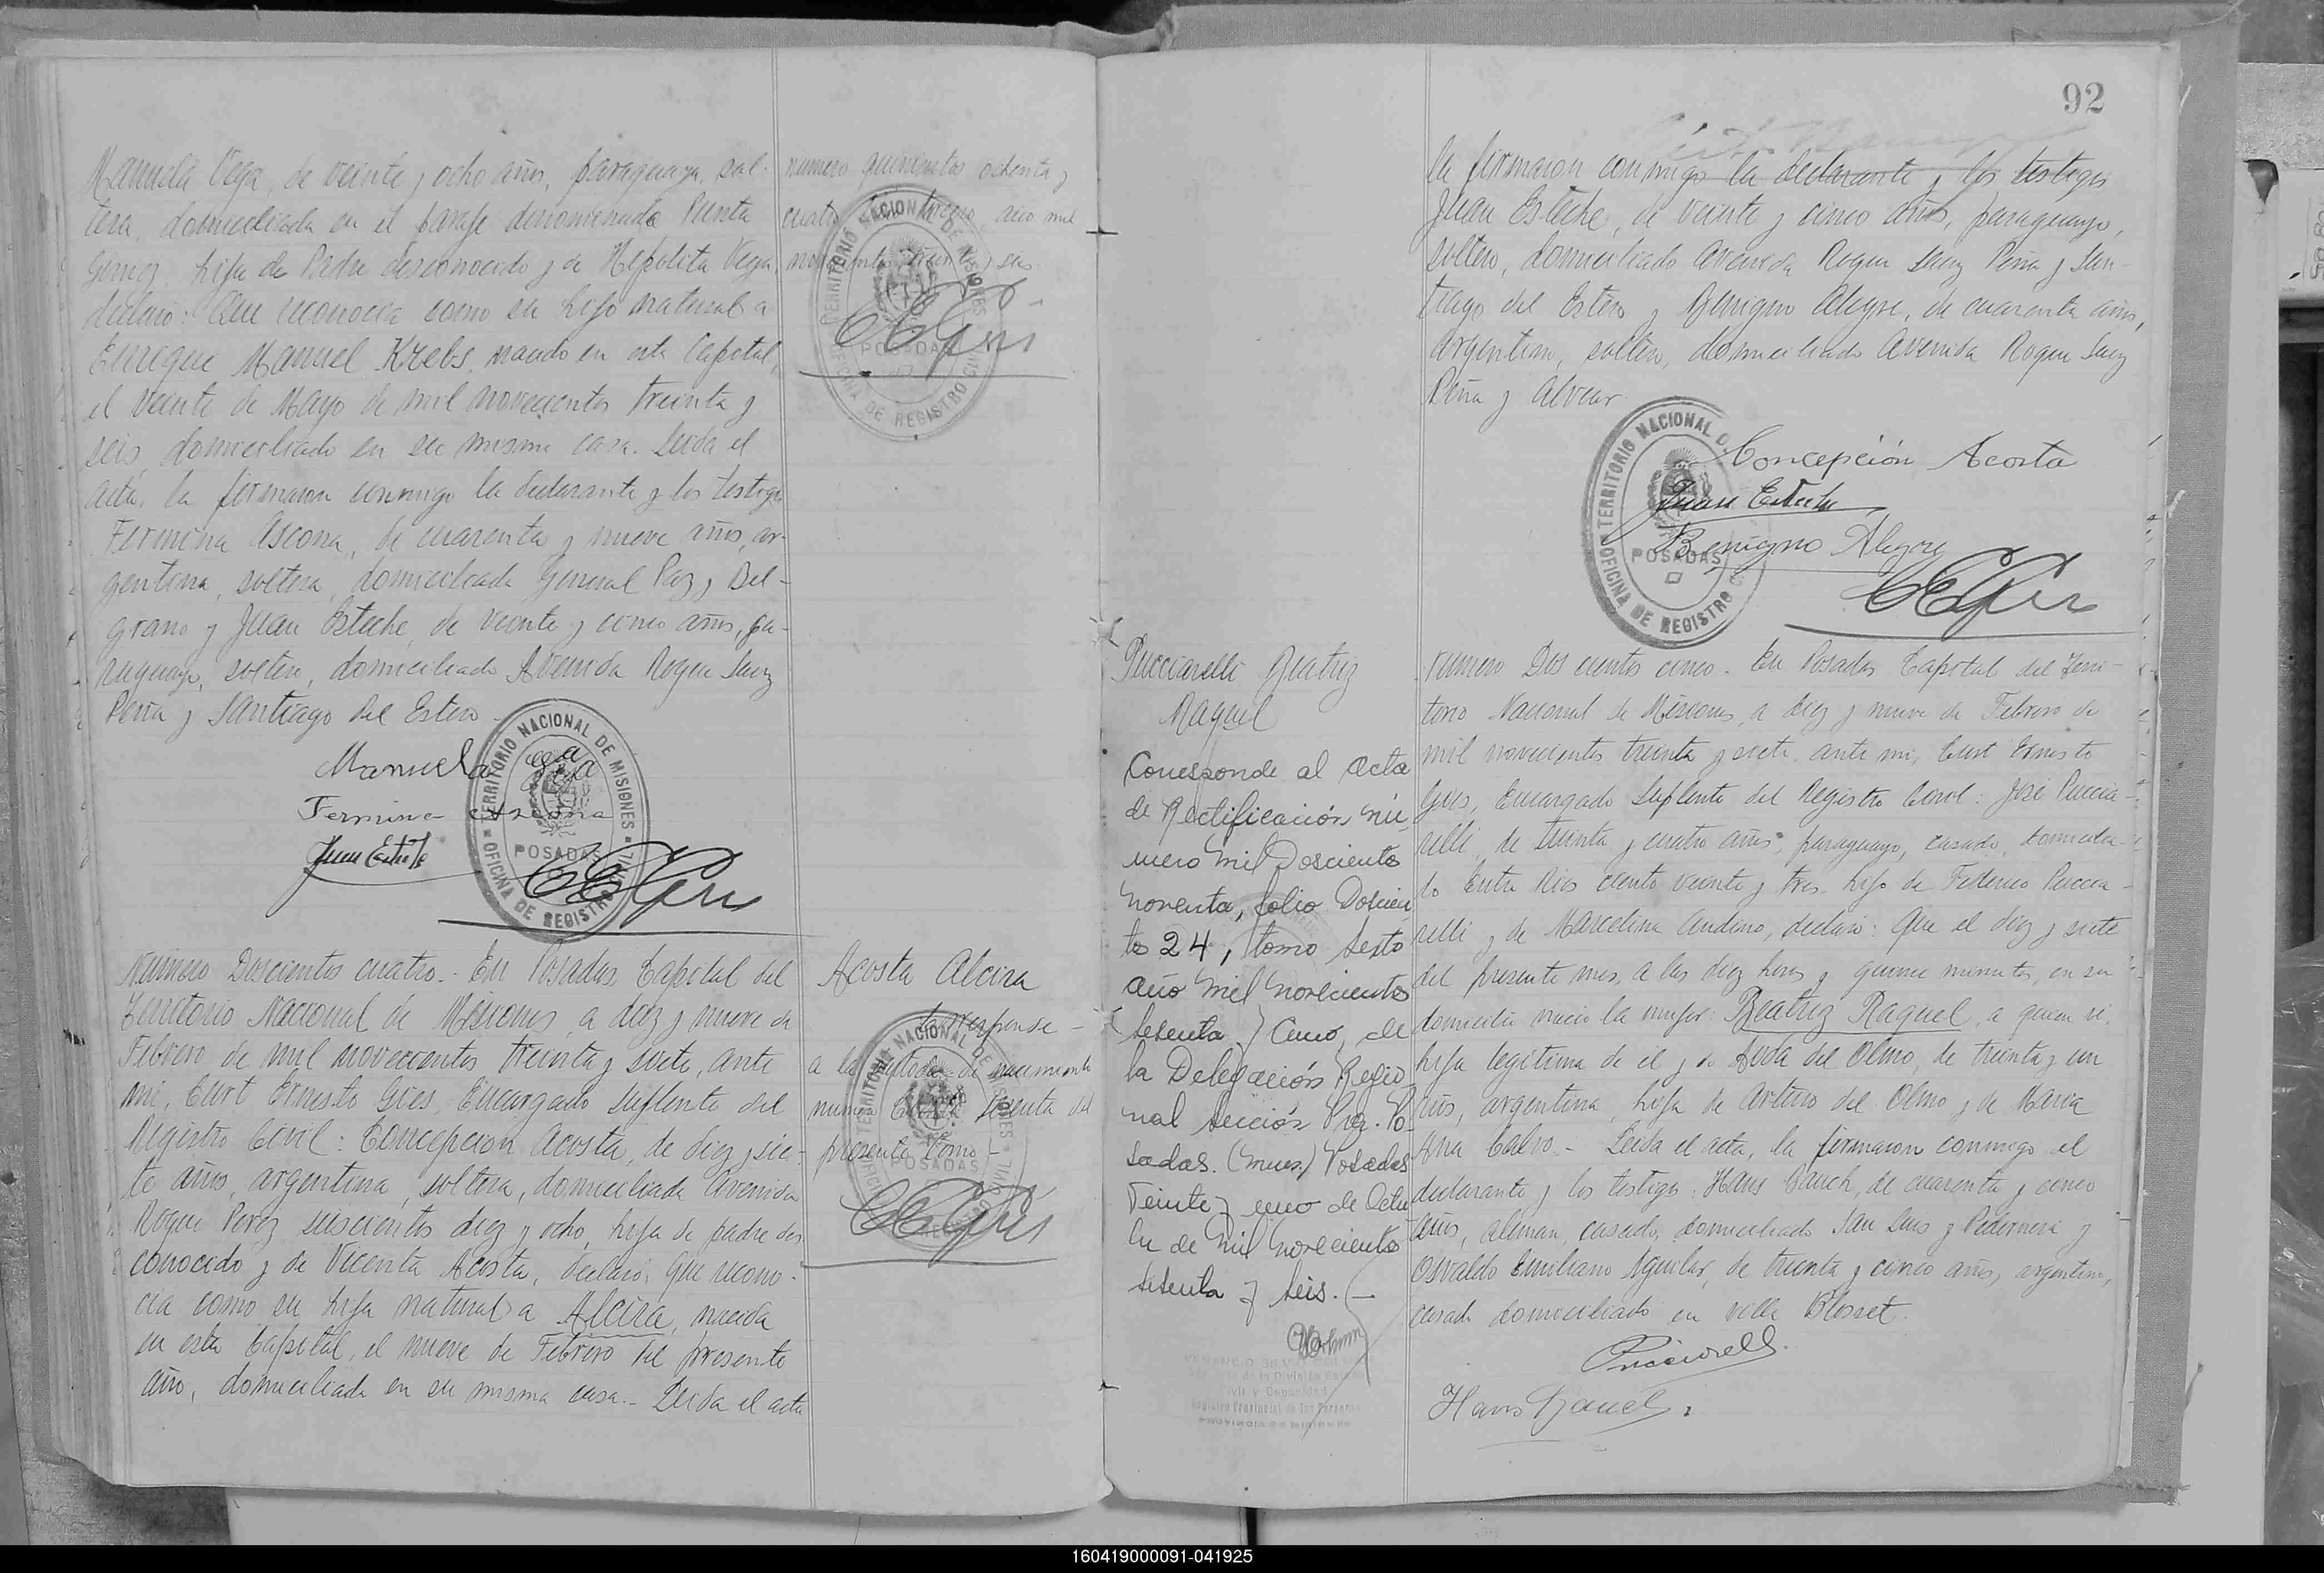 Manuela Vega, de veinte y ocho años, paraguaya, sol-
tera, domiciliada en el paraje denominado Punta
Gomez, hija de Padre desconocido y de Hipolita Vega,
declaró: Que reconocia como su hijo natural a
Enrique Manuel Krebs, nacido en esta Capital,
el veinte de Mayo de mil novecientos treinta y
seis, domiciliado en su misma casa. Leida el
acta, la firmaron conmigo la declarante y los testigos
Fermina Ascona, de cuarenta y nueve años, ar-
gentina, soltera, domiciliada General Paz y Bel-
grano y Juan Esteche, de veinte y cinco años, pa-
raguayo, soltero, domiciliado Avenida Roque Saenz
Peña y Santiago del Estero.
numero quinientos ochenta y
cuatro, tomo tercero, año mil
novecientos treinta y seis
TERRITORIO NACIONAL DE MISIONES
POSADAS
OFICINA DE REGISTRO CIVIL
Manuela Vega
Fermina Ascona
Juan Esteche
TERRITORIO NACIONAL DE MISIONES
POSADAS
OFICINA DE REGISTRO CIVIL
Numero Doscientos cuatro.- En Posadas, Capital del
Territorio Nacional de Misiones, a diez y nueve de
Febrero de mil novecientos treinta y siete, ante
mi, Curt Ernesto Gies, Encargado Suplente del
Registro Civil: Concepcion Acosta, de diez y sie-
te años, argentina, soltera, domiciliada Avenida
Roque Perez seiscientos diez y ocho, hija de padre des
conocido y de Vicenta Acosta, declaró: Que recono-
cia como su hija natural a Alcira, nacida
en esta Capital, el nueve de Febrero del presente
año, domiciliada en su misma casa.- Leida el acta
Acosta Alcira
Corresponde
a la de nacimiento
numero sesenta del
presente tomo-
TERRITORIO NACIONAL DE MISIONES
POSADAS
92
la firmaron conmigo la declarante y los testigos
Juan Esteche, de veinte y cinco años, paraguayo,
soltero, domiciliado Avenida Roque Saenz Peña y San-
tiago del Estero y Benigno Alegre, de cuarenta años,
argentino, soltero, domiciliado Avenida Roque Saenz
Peña y Alvear.
TERRITORIO NACIONAL D
POSADAS
OFICINA DE REGISTRO C
Concepción Acosta
Juan Esteche
Benigno Alegre
Pucciarelli Beatriz
Raquel
Corresponde al acta
de Rectificación nú-
mero mil Doscientos
noventa, folio Doscien
tos 24, tomo sexto
año mil novecientos
setenta y cinco, de
la Delegación Regio
nal Sección Pcia. Po-
sadas. (Mnes.) Posadas
veinte y uno de Octu
bre de mil novecientos
setenta y seis.-
de la División
Civil y Capacidad
Registro Provincial de las Personas
PROVINCIA DE MISIONES
Numero Dos cientos cinco.- En Posadas Capital del Terri-
torio Nacional de Misiones, a diez y nueve de Febrero de
mil novecientos treinta y siete, ante mi, Curt Ernesto
Gies, Encargado Suplente del Registro Civil: José Puccia-
relli, de treinta y cuatro años, paraguayo, casado, domicilia-
do Entre Rios ciento veinte y tres, hijo de Federico Puccia-
relli y de Marcelina Andino, declaró: Que el diez y siete
del presente mes, a las diez horas y quince minutos, en su
domicilio nació la mujer: Beatriz Raquel, a quien vi,
hija legitima de el y de Aida del Olmo, de treinta y un
años, argentina, hija de Arturo del Olmo y de Maria
Ana Calvo.- Leida el acta, la firmaron conmigo el
declarante y los testigos: Hans Bauch, de cuarenta y cinco
años, aleman, casado, domiciliado San Luis y Pedernera y
Osvaldo Emiliano Aguilar, de treinta y cinco años, argentino,
casado domiciliado en villa Blosset.
Pucciarelli
Hans Bauch
160419000091-041925